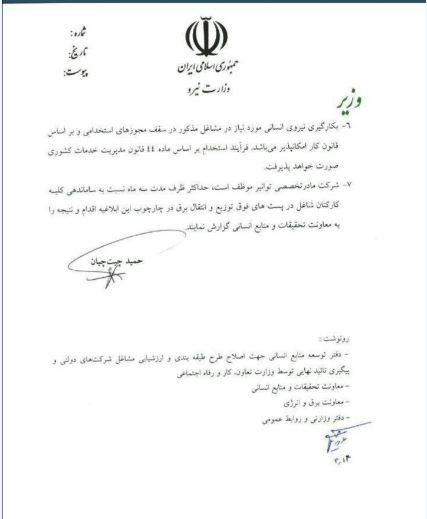 شماره:
تاریخ:
پیوست:
جمهوری اسلامی ایران
وزارت نیرو
وزیر
۶- بکارگیری نیروی انسانی مورد نیاز در مشاغل مذکور در سقف مجوزهای استخدامی و بر اساس
قانون کار امکانپذیر می‌باشد. فرآیند استخدام بر اساس ماده 11 قانون مدیریت خدمات کشوری
صورت خواهد پذیرفت.
۷- شرکت مادرتخصصی توانیر موظف است، حداکثر ظرف مدت سه ماه نسبت به ساماندهی کلیه
کارکنان شاغل در پست های فوق توزیع و انتقال برق در چارچوب این ابلاغیه اقدام و نتیجه را
به معاونت تحقیقات و منابع انسانی گزارش نمایند.
حمید چیت‌چیان
رونوشت:
- دفتر توسعه منابع انسانی جهت اصلاح طرح طبقه بندی و ارزشیابی مشاغل شرکت‌های دولتی و
پیگیری تائید نهایی توسط وزارت تعاون، کار و رفاه اجتماعی
- معاونت تحقیقات و منابع انسانی
- معاونت برق و انرژی
- دفتر وزارتی و روابط عمومی